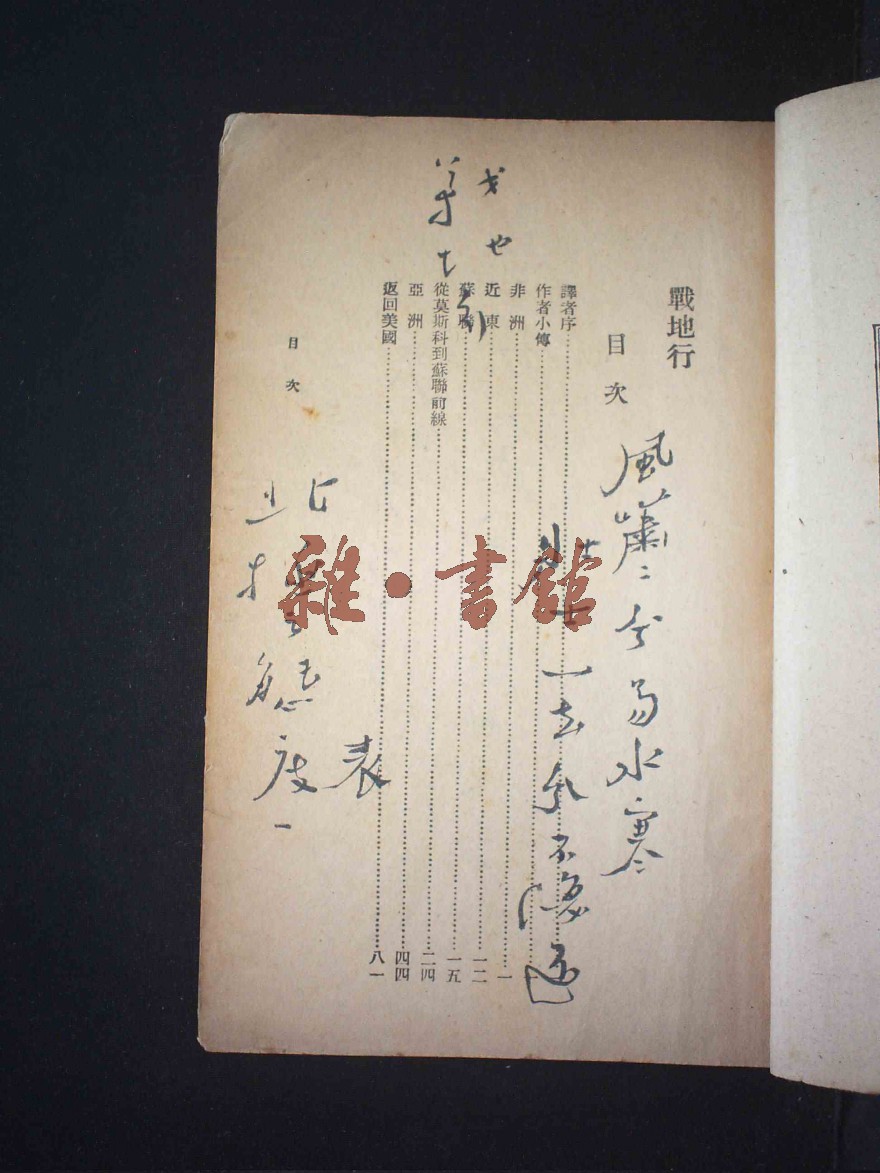 戰地行
目次
譯者序
作者小傳
非洲 一
近東 一二
蘇聯 一五
從莫斯科到蘇聯前線 二四
亞洲 四四
返回美國 八一
目次
風蕭〻兮易水寒
壯士一去兮不復返
表
態度一
雜·書館